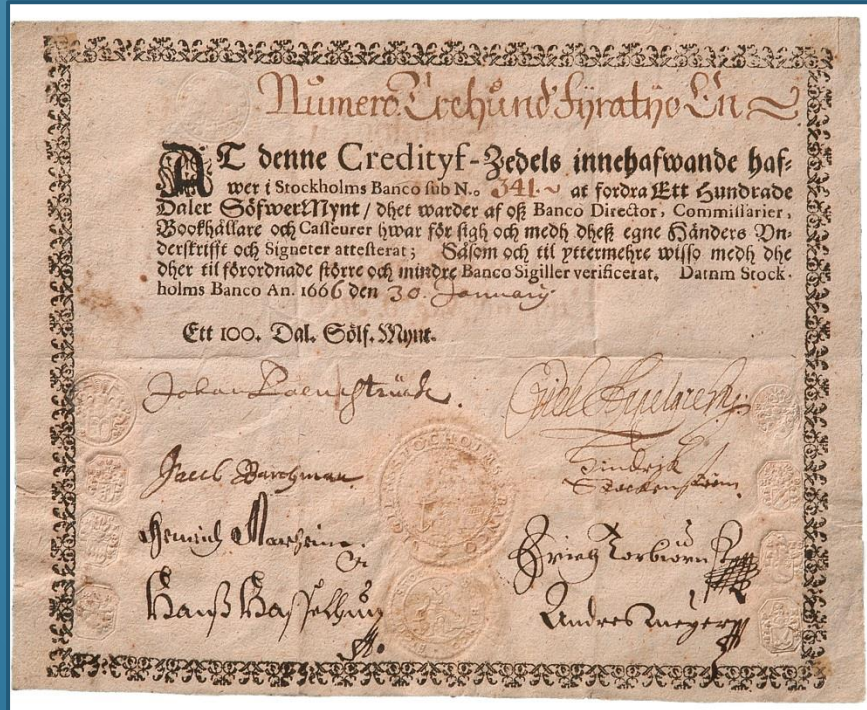 Numero. Trehund. Fyratyo En
AT denne Credityf-Zedels innehafwande haf-
wer i Stockholms Banco sub N.o 341. at fordra Ett Hundrade
Daler SöfwerMynt / dhet warder af oß Banco Director, Commissarier,
Bookhållare och Casseurer hwar för sigh och medh dheß egne Händers Vn-
derskrifft och Signeter attesterat; Såsom och til yttermehre wisso medh dhe
dher til förordnade större och mindre Banco Sigiller verificerat. Datnm Stock-
holms Banco An. 1666 den 30. January.
Ett 100. Dal. Sölf. Mynt.
Johan
Jacob
Hindrik
Henrich
Hanß
Andres Meyer
STOCHOLMS BANCO